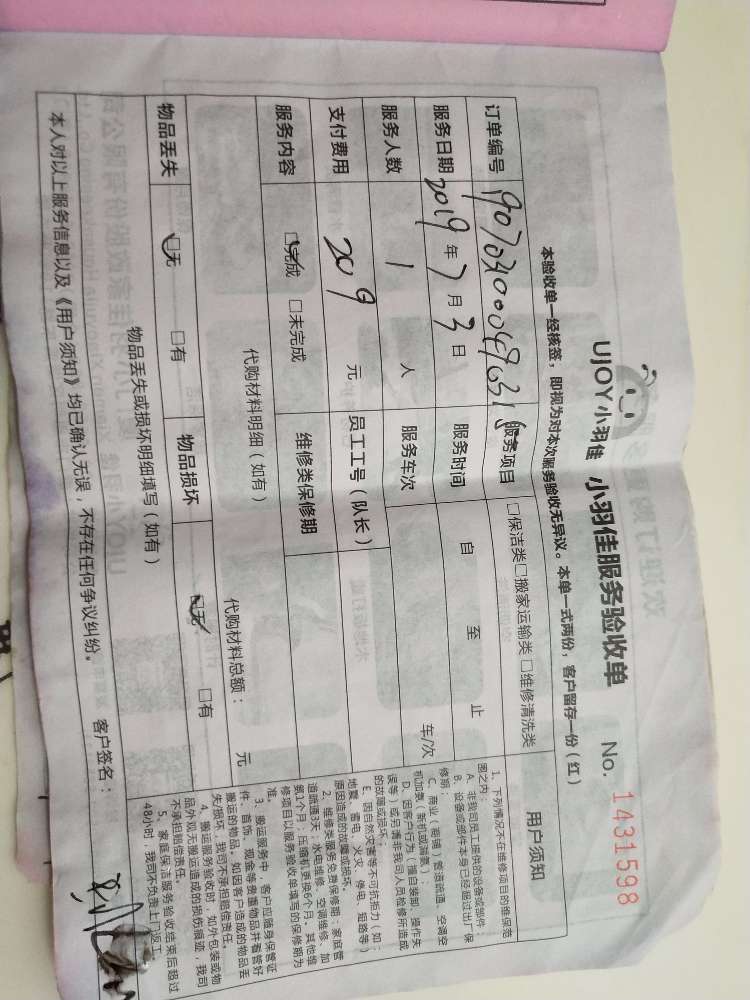 UJOY小羽佳 小羽佳服务验收单 No. 1431598
本验收单一经核签，即视为对本次服务验收无异议。本单一式两份，客户留存一份（红）
订单编号 服务项目 □保洁类□搬家运输类□维修清洗类
服务日期 2019年7月3日 服务时间 自 至 止
服务人数 1 人 服务车次 车/次
支付费用 209 元 员工工号（队长）
服务内容 □完成 □未完成 维修类保修期
代购材料明细（如有） 代购材料总额： 元
物品丢失 □无 □有 物品损坏 □无 □有
物品丢失或损坏明细填写（如有）
本人对以上服务信息以及《用户须知》均已确认无误，不存在任何争议纠纷。 客户签名：
用户须知
1、下列情况不在维修项目的维保范
围之内：
A、非我司员工提供的设备或部件；
B、设备或部件本身已经超过出厂保
修期；
C、商业（商铺）管道疏通、空调空
机加氨（新机或漏氨）；
D、因客户行为（擅自装卸、操作失
误等）或另请非我司人员检修所造成
的故障或损坏；
E、因自然灾害等不可抗拒力（如：
地震、雷电、火灾、停电、短路等）
原因造成的故障或损坏。
2、维修类服务免费保修期：家庭管
道疏通3天；水电维修、空调维修、加
氨1个月；压缩机更换6个月；其他维
修项目以服务验收单填写的保修期为
准。
3、搬运服务中，客户应随身保管证
件、首饰、现金等贵重物品并看管好
搬运的物品。如因客户造成的物品丢
失/损坏，我司不承担赔偿责任。
4、搬运服务验收时，如外包装或物
品外观无搬运造成的损伤痕迹，我司
不承担赔偿责任。
5、家庭保洁服务验收结束后超过
48小时，我司不负责上门返工。